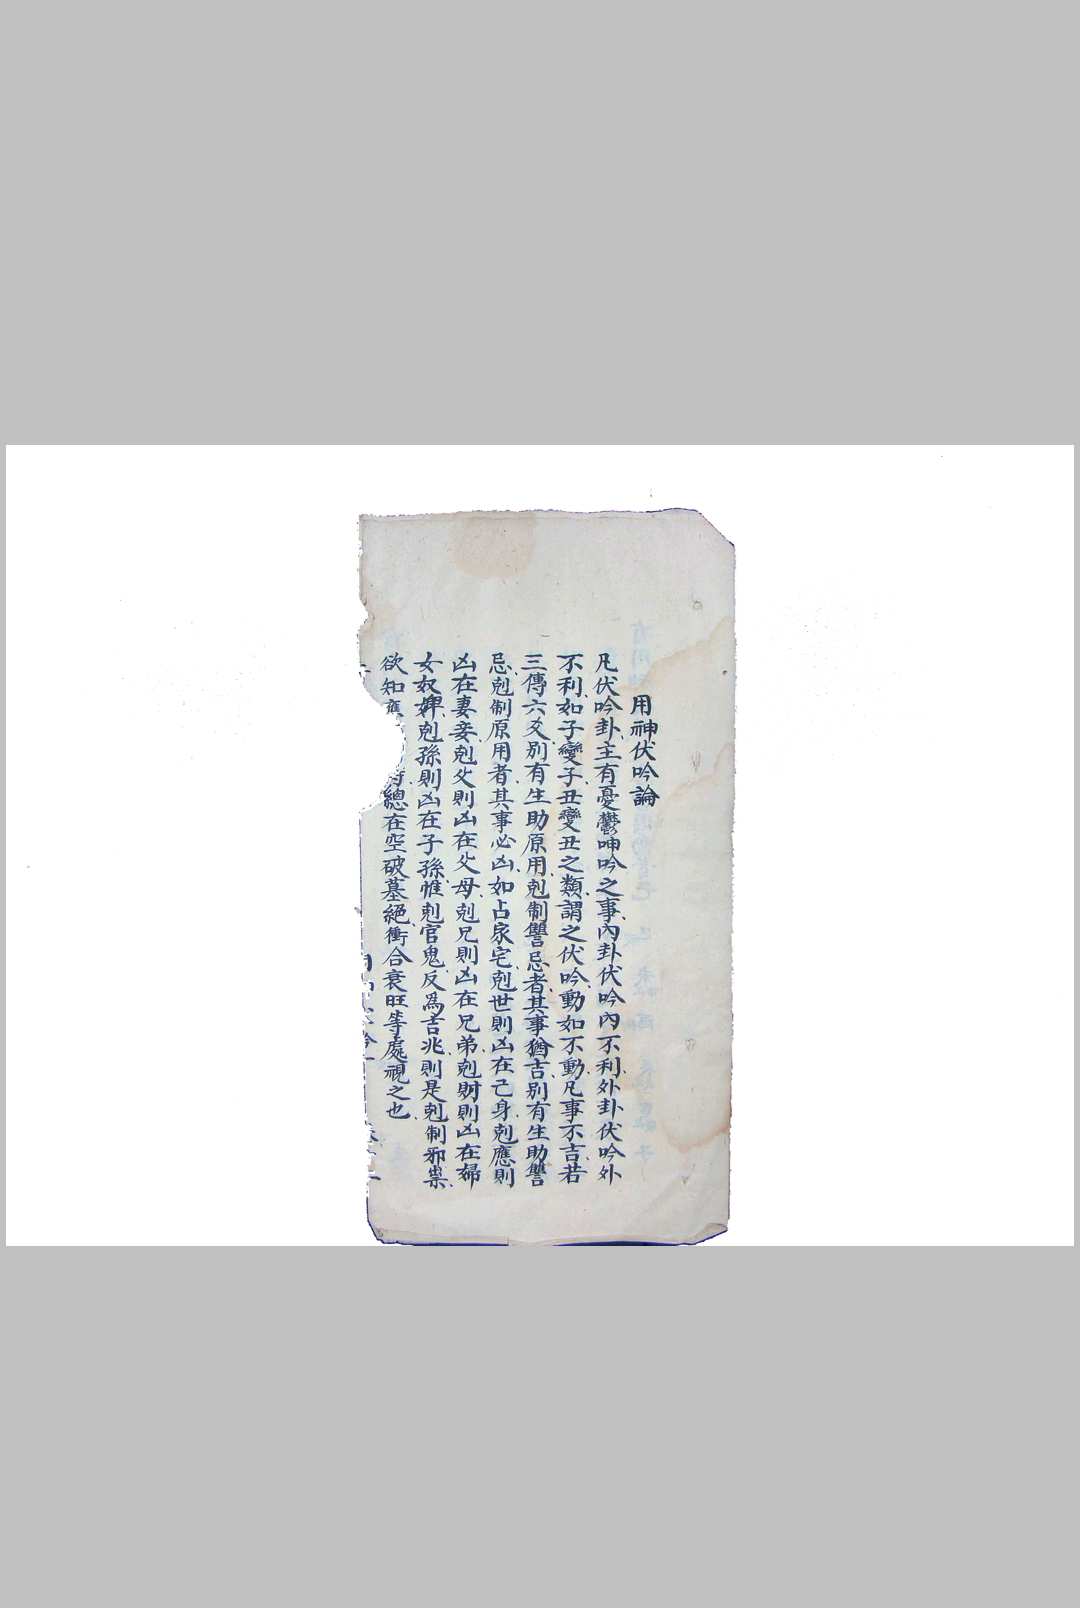 用神伏吟論
凡伏吟卦主有憂鬱呻吟之事內卦伏吟內不利外卦伏吟外
不利如子變子丑變丑之類謂之伏吟動如不動凡事不吉若
三傳六爻別有生助原用剋制讐忌者其事猶吉別有生助讐
忌剋制原用者其事必凶如占家宅剋世則凶在己身剋應則
凶在妻妾剋父則凶在父母剋兄則凶在兄弟剋財則凶在婦
女奴婢剋孫則凶在子孫惟剋官鬼反爲吉兆則是剋制邪祟
欲知應總在空破墓絕衝合衰旺等處視之也